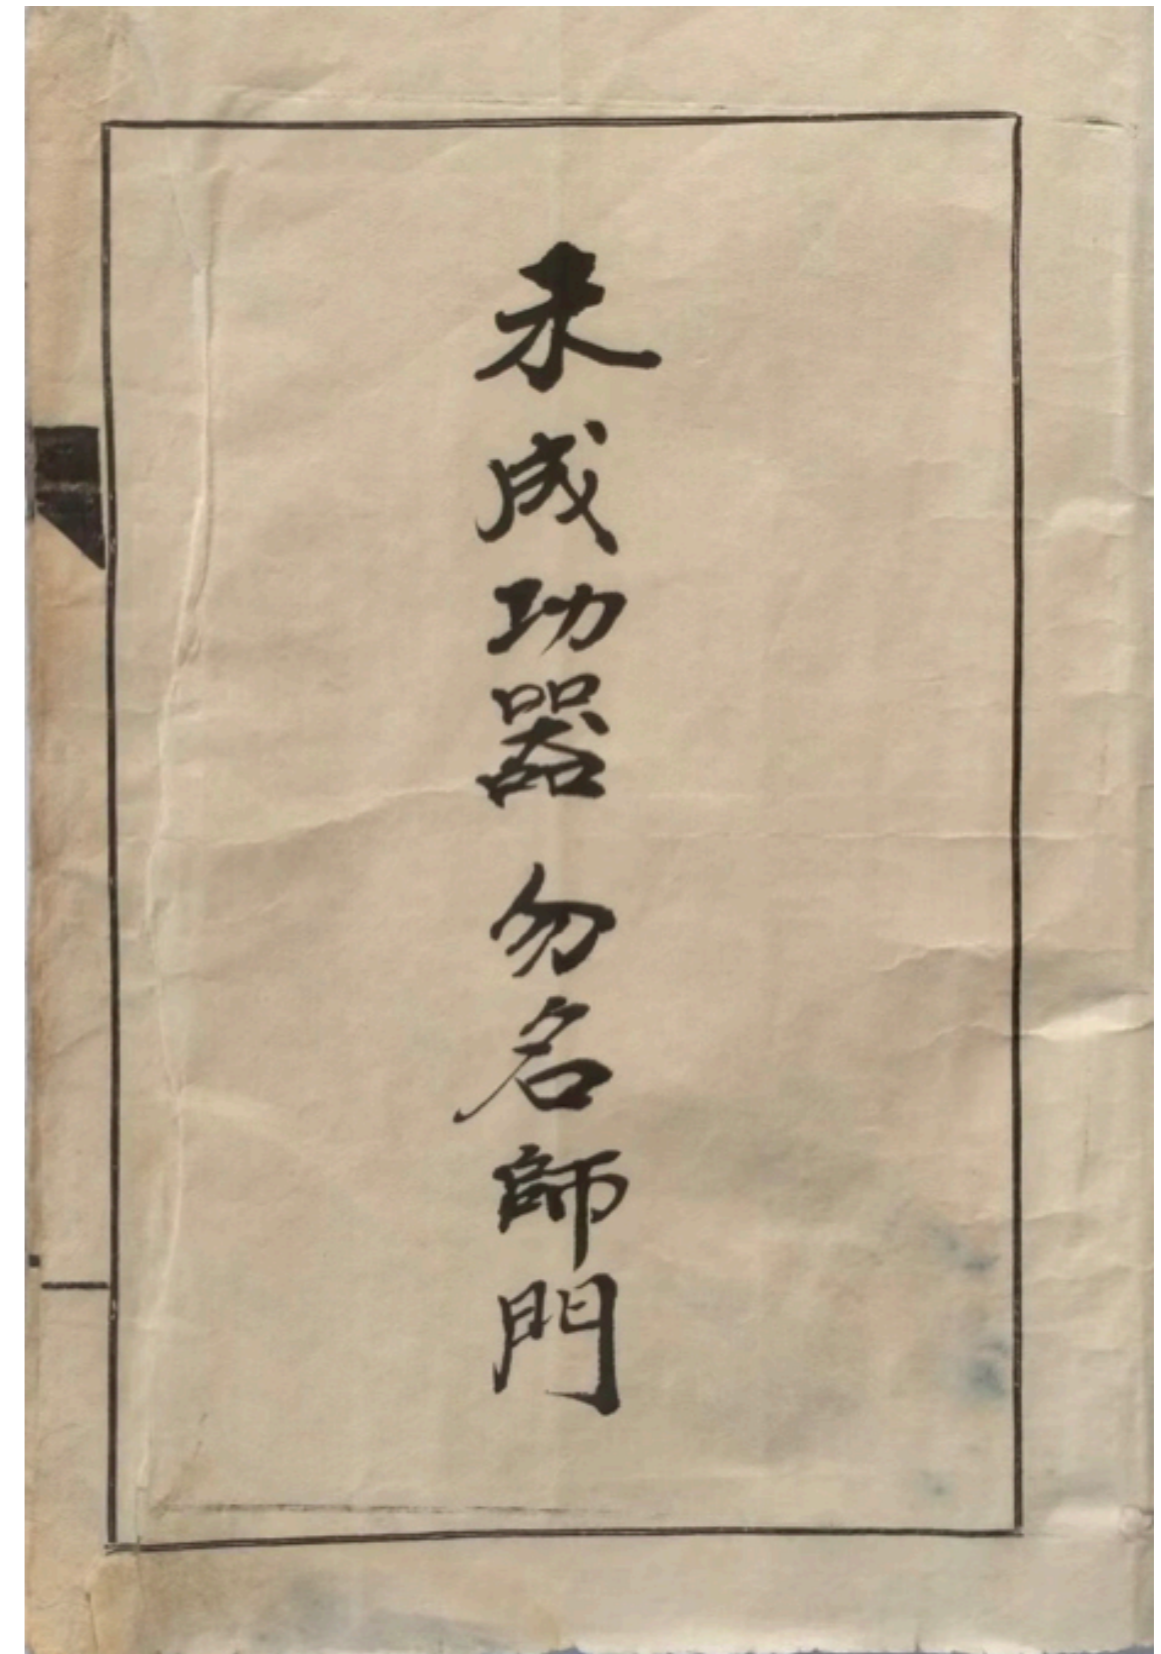 未成功器勿名師門